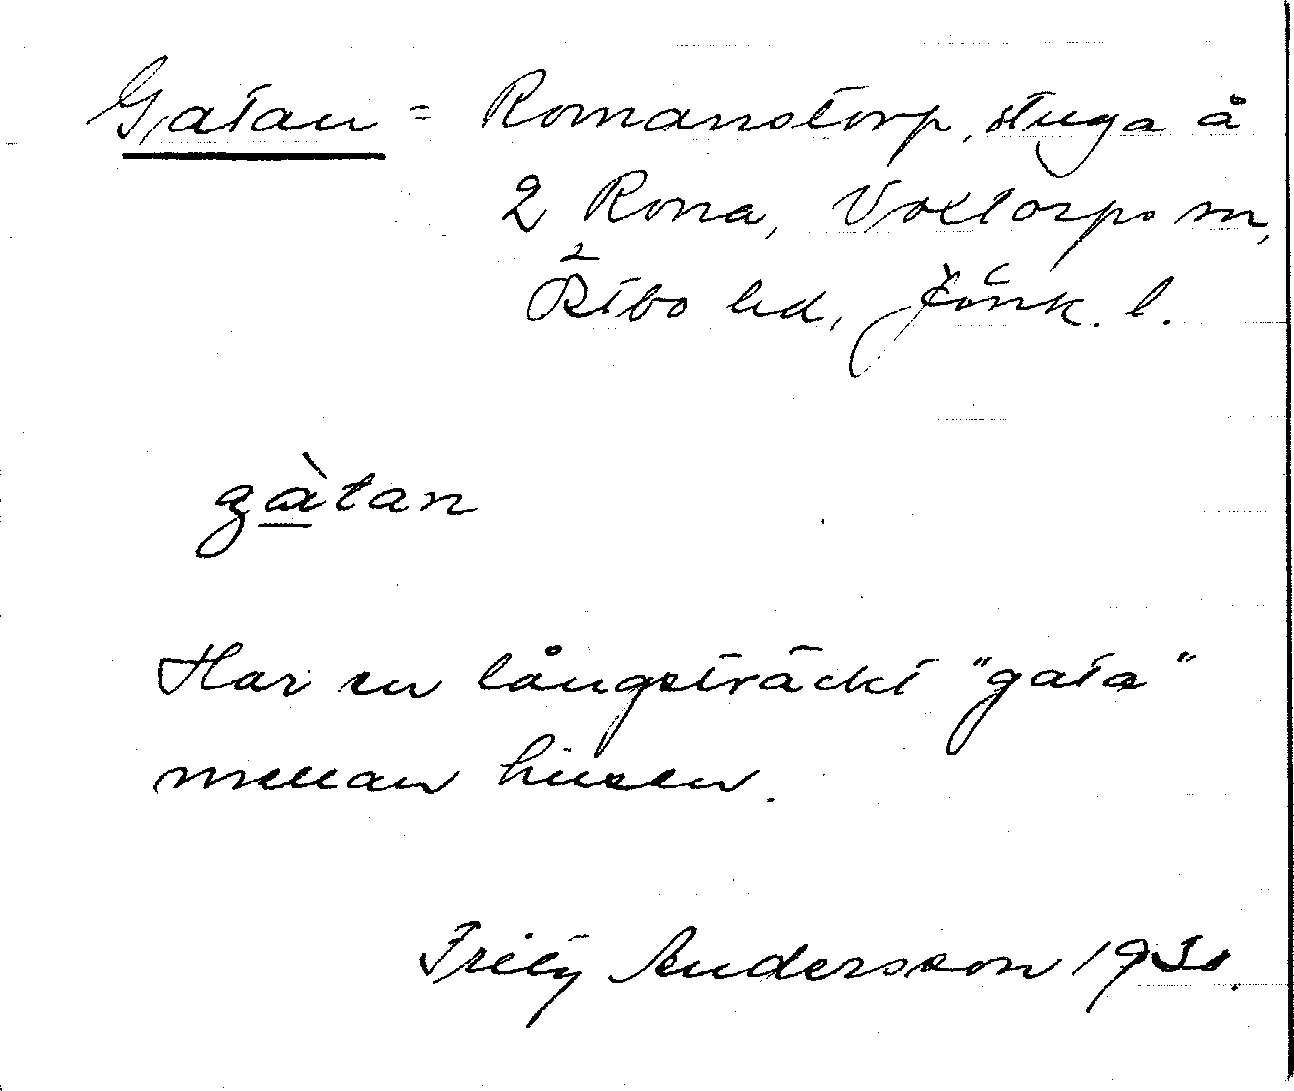 Gatan = Romanstorp, stuga å
2 Rona, Voxtorps sn,
Östbo hd, Jönk. l.
gàtan
Har en långsträckt "gata"
mellan husen.
Fritz Andersson 1930.